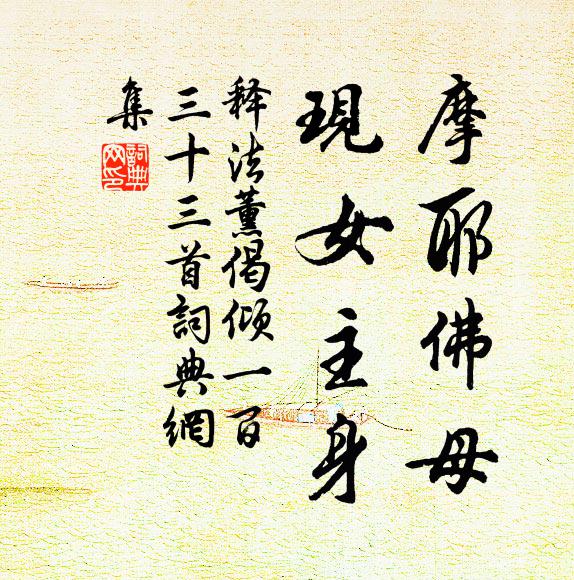 摩耶佛母
現女主身
释法薰偈倾一百
三十三首詞典網
集
詞典網印